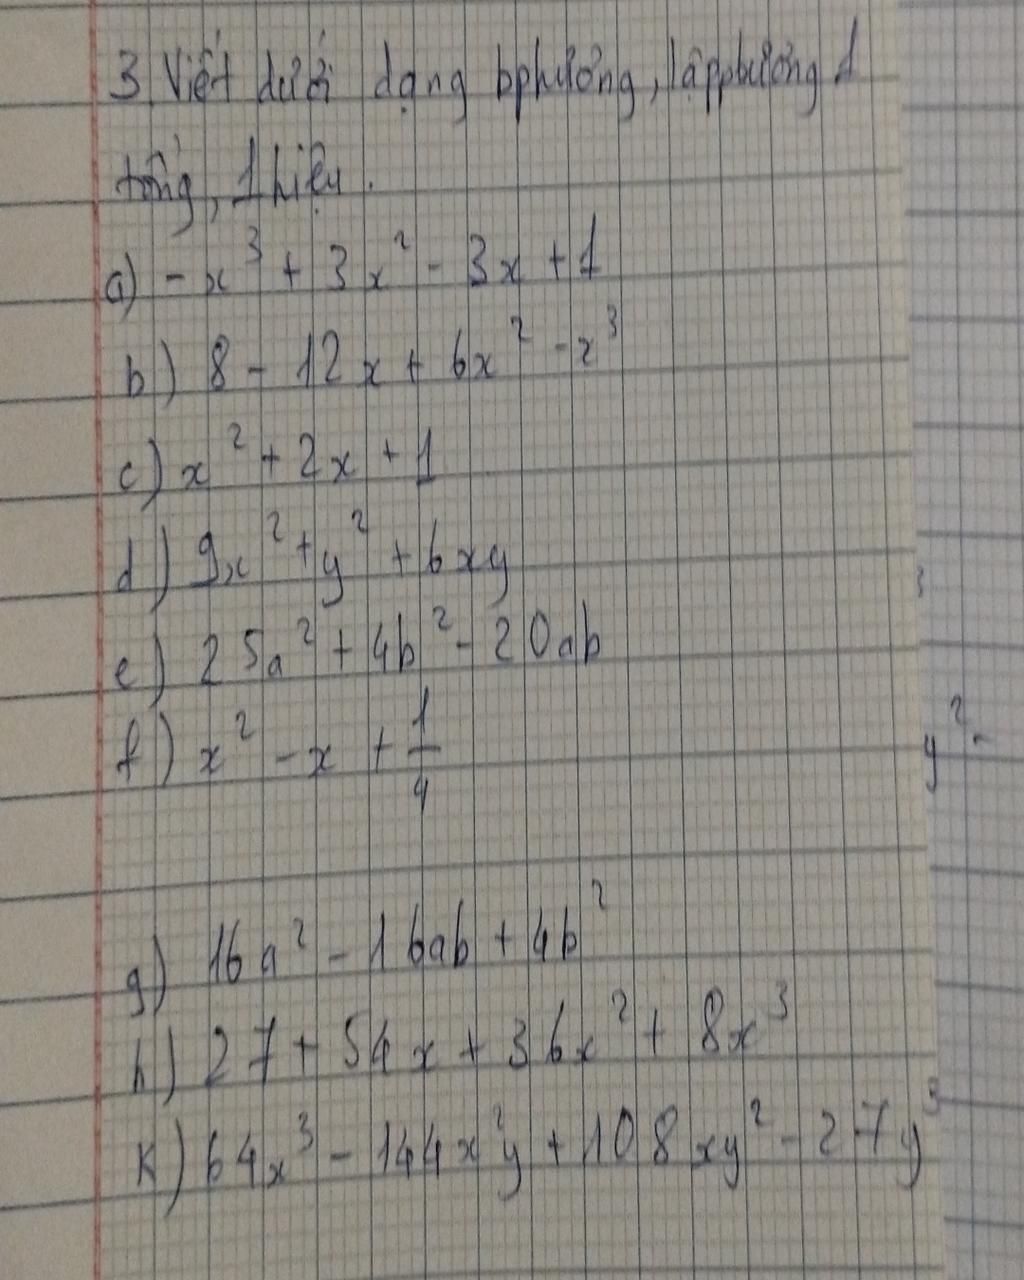 3 Viết dưới dạng bphương, lập phương 1
tổng, 1 hiệu.
a) - x³ + 3x² - 3x + 1
b) 8 - 12x + 6x² - x³
c) x² + 2x + 1
d) 9x² + y² + 6xy
e) 25a² + 4b² - 20ab
f) x² - x + 1/4
y² -
g) 16a² - 16ab + 4b²
h) 27 + 54x + 36x² + 8x³
k) 64x³ - 144x²y + 108xy² - 27y³